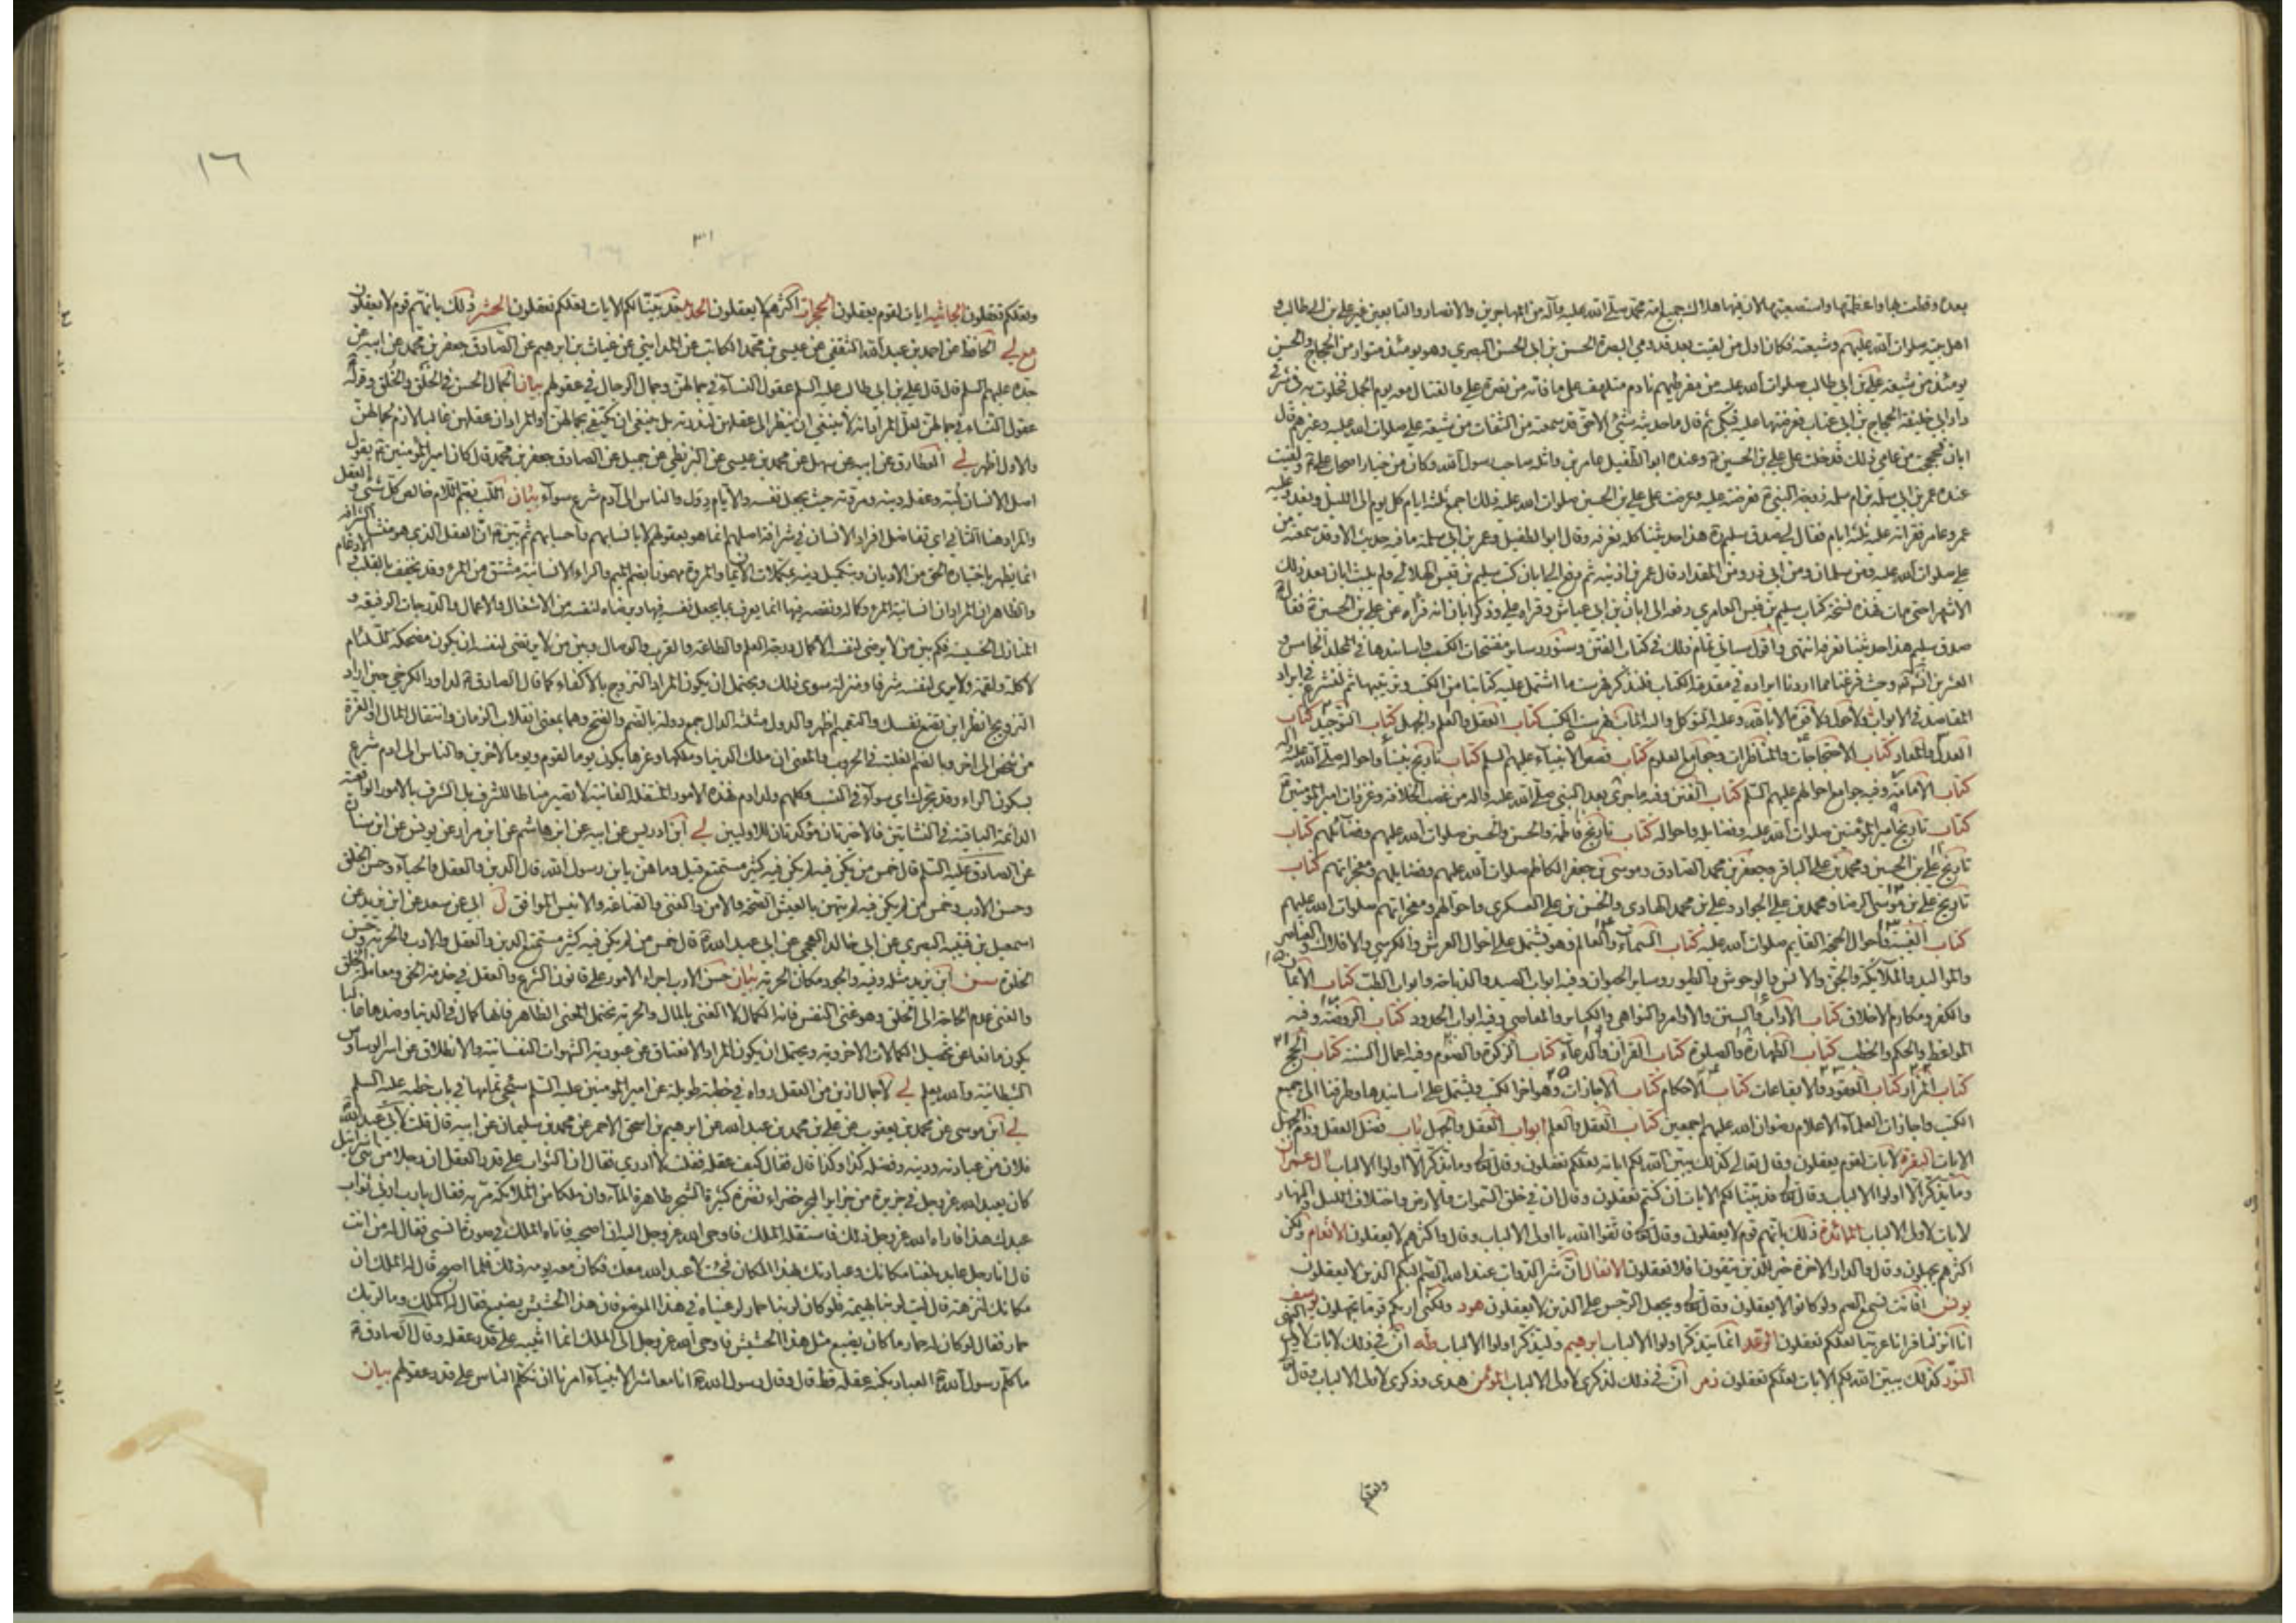 بعده وقطعت بها واعظمتها واستصعبتها لان فيها هلاك جميع امة محمد صلى الله عليه وآله من المهاجرين والانصار والتابعين غير علي بن ابي طالب و
اهل بيته صلوات الله عليهم وشيعته فكان اول من لقيت بعد قدومي البصرة الحسن بن ابي الحسن البصري وهو يومئذ متوار من الحجاج والحسن
يومئذ من شيعة علي بن ابي طالب صلوات الله عليه من مفرطيهم نادم متلهف على ما فاته من نصرة علي والقتال معه يوم الجمل فخلوت به في شرقي
دار ابي خليفة الحجاج بن ابي عتاب فعرضتها عليه فبكى ثم قال ما حديثه شئ الا حق قد سمعته من الثقات من شيعة علي صلوات الله عليه وغيرهم قال
ابان فحججت من عامي ذلك فدخلت على علي بن الحسين وعنده ابو الطفيل عامر بن واثلة صاحب رسول الله وكان من خيار اصحاب علي ولقيت
عنده عمر بن ابي سلمة بن ام سلمة زوجة النبي فعرضته عليه وعرضت على علي بن الحسين صلوات الله عليه ذلك اجمع ثلثة ايام كل يوم الى الليل ويغدو عليه
عمر وعامر فقرأته عليه ثلثة ايام فقال لي صدق سليم هذا حديثنا كله نعرفه وقال ابو الطفيل وعمر بن ابي سلمة ما فيه حديث الا وقد سمعته من
علي صلوات الله عليه ومن سلمان ومن ابي ذر ومن المقداد قال عمر بن اذينة ثم دفع الي ابان كتب سليم بن قيس الهلالي ولم يلبث ابان بعد ذلك
الا شهرا حتى مات فهذه نسخة كتاب سليم بن قيس العامري دفعه الى ابان بن ابي عياش وقرأه علي وذكر ابان انه قرأه على علي بن الحسين فقال
صدق سليم هذا حديثنا نعرفه انتهى واقول سيأتي تمام ذلك في كتاب الفتن وسنورد سائر مفتتحات الكتب واسانيدها في المجلد الخامس و
العشرين وحيث فرغنا مما اردنا ايراده في مقدمة الكتاب فلنذكر فهرست ما اشتمل عليه كتابنا من الكتب وترتيبها ثم لنشرع في ايراد
المقاصد في الابواب ولا حول ولا قوة الا بالله وعليه التوكل واليه المآب فهرست الكتب كتاب العقل والعلم والجهل كتاب التوحيد كتاب
العدل والمعاد كتاب الاحتجاجات والمناظرات وجوامع العلوم كتاب قصص الانبياء عليهم السلم كتاب تاريخ نبينا واحواله صلى الله عليه وآله
كتاب الامامة وفيه جوامع احوالهم عليهم السلم كتاب الفتن وفيه ما جرى بعد النبي صلى الله عليه وآله من غصب الخلافة وغزوات امير المؤمنين
كتاب تاريخ امير المؤمنين صلوات الله عليه وفضائله واحواله كتاب تاريخ فاطمة والحسن والحسين صلوات الله عليهم وفضائلهم كتاب
تاريخ علي بن الحسين ومحمد بن علي الباقر وجعفر بن محمد الصادق وموسى بن جعفر الكاظم صلوات الله عليهم وفضايلهم ومعجزاتهم كتاب
تاريخ علي بن موسى الرضا ومحمد بن علي الجواد وعلي بن محمد الهادي والحسن بن علي العسكري واحوالهم ومعجزاتهم صلوات الله عليهم
كتاب الغيبة واحوال الحجة القايم صلوات الله عليه كتاب السماء والعالم وهو يشتمل على احوال العرش والكرسي والافلاك والعناصر
والمواليد والملائكة والجن والانس والوحوش والطيور وساير الحيوان وفيه ابواب الصيد والذباحة وابواب الطب كتاب الايمان
والكفر ومكارم الاخلاق كتاب الآداب والسنن والاوامر والنواهي والكبائر والمعاصي وفيه ابواب الحدود كتاب الروضة وفيه
المواعظ والحكم والخطب كتاب الطهارة والصلوة كتاب القرآن والدعاء كتاب الزكوة والصوم وفيه اعمال السنة كتاب الحج
كتاب المزار كتاب العقود والايقاعات كتاب الاحكام كتاب الاجازات وهو اخر الكتب ويشتمل على اسانيدها وطرقنا الى جميع
الكتب واجازات العلماء الاعلام رضوان الله عليهم اجمعين كتاب العقل والعلم ابواب العقل والجهل باب فضل العقل وذم الجهل
الايات البقرة لآيات لقوم يعقلون وقال تعالى كذلك يبين الله لكم اياته لعلكم تعقلون وقال وما يذكر الا اولوا الالباب آل عمران
وما يذكر الا اولوا الالباب وقال قد بينا لكم الايات ان كنتم تعقلون وقال ان في خلق السموات والارض واختلاف الليل والنهار
لايات لاولي الالباب المائدة ذلك بانهم قوم لا يعقلون وقال فاتقوا الله يا اولي الالباب وقال واكثرهم لا يعقلون الانعام ولكن
اكثرهم يجهلون وقال وللدار الآخرة خير للذين يتقون افلا تعقلون الانفال ان شر الدواب عند الله الصم البكم الذين لا يعقلون
يونس افانت تسمع الصم ولو كانوا لا يعقلون وقال ويجعل الرجس على الذين لا يعقلون هود ولكني اريكم قوما تجهلون يوسف
انا انزلناه قرانا عربيا لعلكم تعقلون الرعد انما يتذكر اولوا الالباب ابرهيم وليذكر اولوا الالباب طه ان في ذلك لايات لاولي النهى
النور كذلك يبين الله لكم الايات لعلكم تعقلون زمر ان في ذلك لذكرى لاولي الالباب المؤمن هدى وذكرى لاولي الالباب وقال
ولعلكم
١٦
٣١
ولعلكم تعقلون الجاثية ايات لقوم يعقلون الحجرات اكثرهم لا يعقلون الحديد قد بينا لكم الايات لعلكم تعقلون الحشر ذلك بانهم قوم لا يعقلون
مع لي الحافظ عن احمد بن عبد الله الثقفي عن عيسى بن محمد الكاتب عن المدايني عن غياث بن ابرهيم عن الصادق جعفر بن محمد عن ابيه عن
جده عليهم السلم قال قال علي بن ابي طالب عليه السلم عقول النساء في جمالهن وجمال الرجال في عقولهم بيان الجمال الحسن في الخلق والخلق وقوله
عقول النساء في جمالهن لعل المراد انه لا ينبغي ان ينظر الى عقلهن لندرته بل ينبغي ان يكتفى بجمالهن او المراد ان عقلهن غالبا لازم لجمالهن
والاول اظهر لي العطار عن ابيه عن سهل عن محمد بن عيسى عن البزنطي عن جميل عن الصادق جعفر بن محمد قال كان امير المؤمنين يقول
اصل الانسان لبه وعقله دينه ومروته حيث يجعل نفسه والايام دول والناس الى آدم شرع سواء بيان اللب بضم اللام خالص كل شئ والعقل
والمراد هنا الثاني اي تفاضل افراد الانسان في شرافة اصلهم انما هو بعقولهم لا بانسابهم واحسابهم ثم بين ان العقل الذي هو منشأ الشرافة
انما يظهر باختياره الحق من الاديان وبتكميل دينه بمكملات الايمان والمروة مهموزا بضم الميم والراء الانسانية مشتق من المرء وقد يخفف بالقلب والادغام
والظاهر ان المراد ان انسانية المرء وكماله ونقصه فيها انما يعرف بما يجعل نفسه فيها ويرضاه لنفسه من الاشغال والاعمال والدرجات الرفيعة و
المنازل الخسيسة فكم بين من لا يرضى لنفسه الا كمال درجة العلم والطاعة والقرب والوصال وبين من لا يرتضي لنفسه ان يكون مضحكة للئام
لاكلة ولقمة ولا يرى لنفسه شرفا ومنزلة سوى ذلك ويحتمل ان يكون المراد التزوج بالاكفاء كما قال الصادق لداود الكرخي حين اراد
التزويج انظر اين تضع نفسك والتعميم اظهر والدول مثلثة الدال جمع دولة بالضم والفتح وهما بمعنى انقلاب الزمان وانتقال المال او العزة
من شخص الى اخر وبالضم الغلبة في الحروب والمعنى ان ملك الدنيا وملكها وعزها يكون يوما لقوم ويوما لاخرين والناس الى ادم شرع
بسكون الراء وقد يحرك اي سواء في النسب وكلهم ولد ادم فهذه الامور المنتقلة الفانية لا تصير مناطا للشرف بل الشرف بالامور الواقعية
الدائمة الباقية في النشأتين فالاخيرتان مؤكدتان للاوليين لي ابن ادريس عن ابيه عن ابن هاشم عن ابن مرار عن يونس عن ابن سنان
عن الصادق عليه السلم قال خمس من لم يكن فيه لم يكن فيه كثير مستمتع قيل وما هن يابن رسول الله قال الدين والعقل والحياء وحسن الخلق
وحسن الادب وخمس من لم يكن فيه لم يتهن بالعيش الصحة والامن والغنى والقناعة والانيس الموافق ل ابي عن سعد عن ابن يزيد عن
اسمعيل بن قتيبة البصري عن ابي خالد العجمي عن ابي عبد الله قال خمس من لم يكن فيه لم يكن فيه كثير مستمتع الدين والعقل والادب والحرية وحسن
الخلق سن ابن يزيد مثله وفيه والجود مكان الحرية بيان حسن الادب اجراء الامور على قانون الشرع والعقل في خدمة الحق ومعاملة الخلق
والغنى عدم الحاجة الى الخلق وهو غنى النفس فانه الكمال لا الغنى بالمال والحرية تحتمل المعنى الظاهر فانها كمال في الدنيا وضدها غالبا
يكون مانعا عن تحصيل الكمالات الاخروية ويحتمل ان يكون المراد الانعتاق عن عبودية الشهوات النفسانية والانطلاق عن اسر الوساوس
الشيطانية والله يعلم لي لا جمال ازين من العقل رواه في خطبة طويلة عن امير المؤمنين عليه السلم سيجئ تمامها في باب خطبه عليه السلم
لي ابن موسى عن محمد بن يعقوب عن علي بن محمد بن عبد الله عن ابرهيم بن اسحق الاحمر عن محمد بن سليمان عن ابيه قال قلت لابي عبد الله
فلان من عبادته ودينه وفضله كذا وكذا قال فقال كيف عقله فقلت لا ادري فقال ان الثواب على قدر العقل ان رجلا من بني اسرائيل
كان يعبد الله عز وجل في جزيرة من جزاير البحر خضراء نضرة كثيرة الشجر طاهرة الماء وان ملكا من الملائكة مر به فقال يا رب ارني ثواب
عبدك هذا فاراه الله عز وجل ذلك فاستقله الملك فاوحى الله عز وجل اليه ان اصحبه فاتاه الملك في صورة انسي فقال له من انت
قال انا رجل عابد بلغنا مكانك وعبادتك بهذا المكان فجئت لاعبد الله معك فكان معه يومه ذلك فلما اصبح قال له الملك ان
مكانك لنزهة قال ليت لربنا بهيمة فلو كان لربنا حمار لرعيناه في هذا الموضع فان هذا الحشيش يضيع فقال له الملك وما لربك
حمار فقال لو كان له حمار ما كان يضيع مثل هذا الحشيش فاوحى الله عز وجل الى الملك انما اثيبه على قدر عقله وقال الصادق
ما كلم رسول الله العباد بكنه عقله قط قال وقال رسول الله انا معاشر الانبياء امرنا ان نكلم الناس على قدر عقولهم بيان